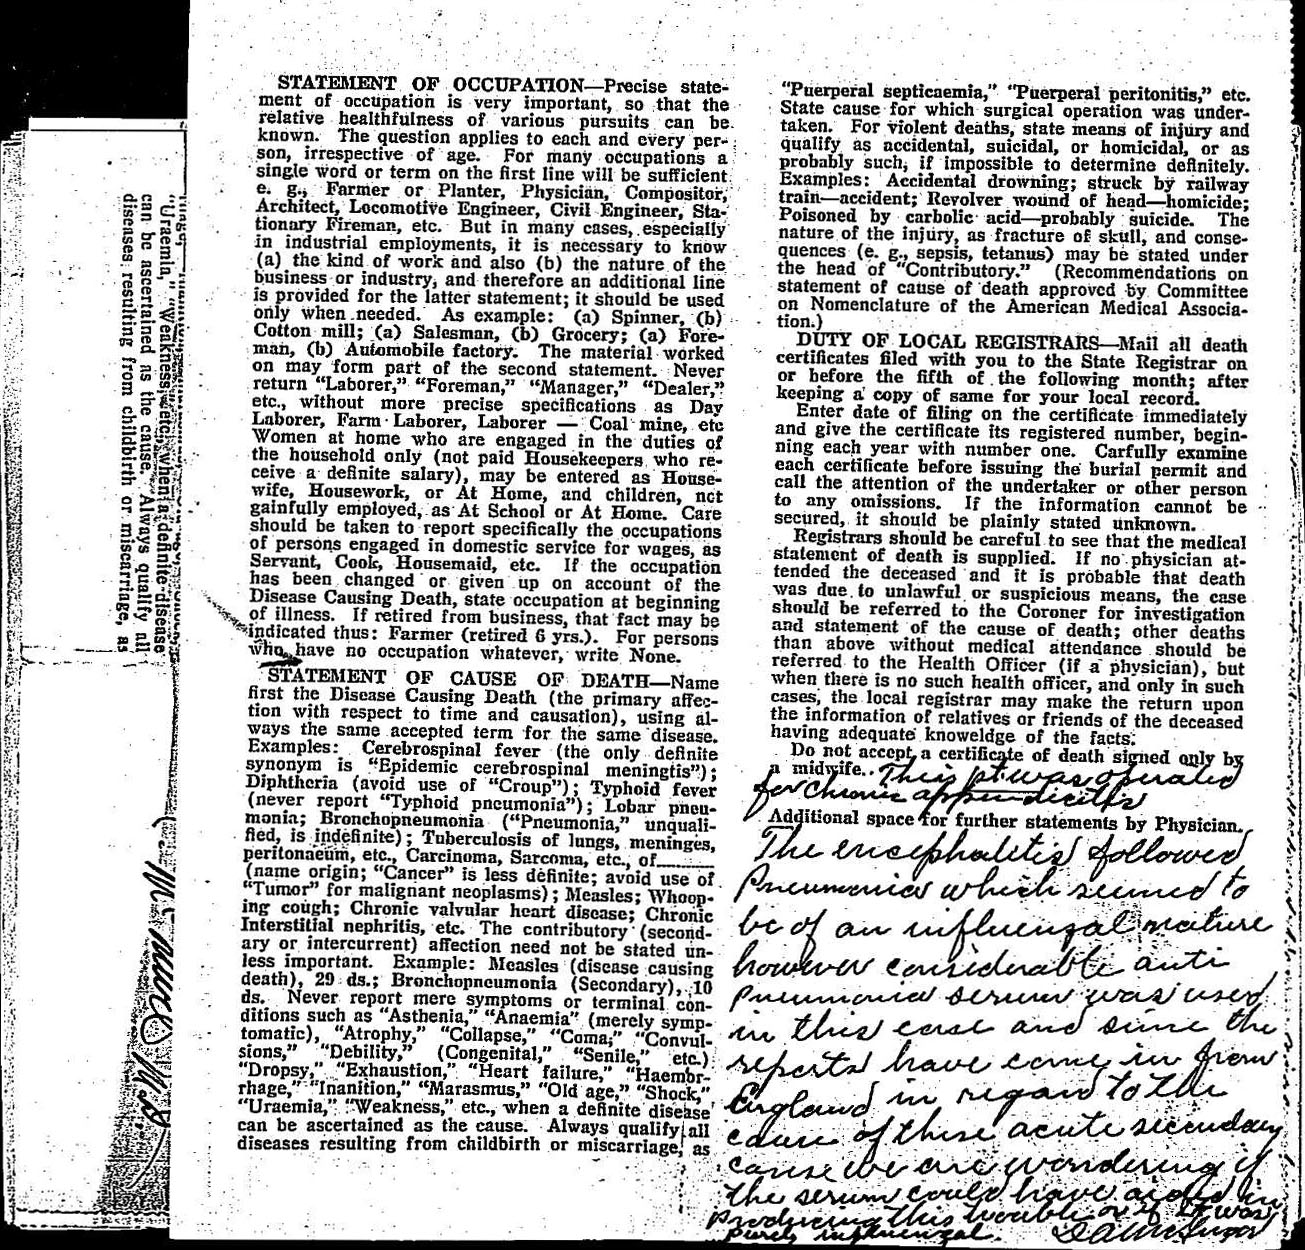 STATEMENT OF OCCUPATION—Precise state-
ment of occupation is very important, so that the
relative healthfulness of various pursuits can be
known. The question applies to each and every per-
son, irrespective of age. For many occupations a
single word or term on the first line will be sufficient
e. g., Farmer or Planter, Physician, Compositor,
Architect, Locomotive Engineer, Civil Engineer, Sta-
tionary Fireman, etc. But in many cases, especially
in industrial employments, it is necessary to know
(a) the kind of work and also (b) the nature of the
business or industry, and therefore an additional line
is provided for the latter statement; it should be used
only when needed. As example: (a) Spinner, (b)
Cotton mill; (a) Salesman, (b) Grocery; (a) Fore-
man, (b) Automobile factory. The material worked
on may form part of the second statement. Never
return "Laborer," "Foreman," "Manager," "Dealer,"
etc., without more precise specifications as Day
Laborer, Farm Laborer, Laborer — Coal mine, etc
Women at home who are engaged in the duties of
the household only (not paid Housekeepers who re-
ceive a definite salary), may be entered as House-
wife, Housework, or At Home, and children, not
gainfully employed, as At School or At Home. Care
should be taken to report specifically the occupations
of persons engaged in domestic service for wages, as
Servant, Cook, Housemaid, etc. If the occupation
has been changed or given up on account of the
Disease Causing Death, state occupation at beginning
of illness. If retired from business, that fact may be
indicated thus: Farmer (retired 6 yrs.). For persons
who have no occupation whatever, write None.
STATEMENT OF CAUSE OF DEATH—Name
first the Disease Causing Death (the primary affec-
tion with respect to time and causation), using al-
ways the same accepted term for the same disease.
Examples: Cerebrospinal fever (the only definite
synonym is "Epidemic cerebrospinal meningtis");
Diphtheria (avoid use of "Croup"); Typhoid fever
(never report "Typhoid pneumonia"); Lobar pneu-
monia; Bronchopneumonia ("Pneumonia," unquali-
fied, is indefinite); Tuberculosis of lungs, meninges,
peritonaeum, etc., Carcinoma, Sarcoma, etc., of
(name origin; "Cancer" is less definite; avoid use of
"Tumor" for malignant neoplasms); Measles; Whoop-
ing cough; Chronic valvular heart disease; Chronic
Interstitial nephritis, etc. The contributory (second-
ary or intercurrent) affection need not be stated un-
less important. Example: Measles (disease causing
death), 29 ds.; Bronchopneumonia (Secondary), 10
ds. Never report mere symptoms or terminal con-
ditions such as "Asthenia," "Anaemia" (merely symp-
tomatic), "Atrophy," "Collapse," "Coma," "Convul-
sions," "Debility," (Congenital," "Senile," etc.)
"Dropsy," "Exhaustion," "Heart failure," "Haembr-
rhage," "Inanition," "Marasmus," "Old age," "Shock,"
"Uraemia," "Weakness," etc., when a definite disease
can be ascertained as the cause. Always qualify all
diseases resulting from childbirth or miscarriage, as
"Puerperal septicaemia," "Puerperal peritonitis," etc.
State cause for which surgical operation was under-
taken. For violent deaths, state means of injury and
qualify as accidental, suicidal, or homicidal, or as
probably such, if impossible to determine definitely.
Examples: Accidental drowning; struck by railway
train—accident; Revolver wound of head—homicide;
Poisoned by carbolic acid—probably suicide. The
nature of the injury, as fracture of skull, and conse-
quences (e. g., sepsis, tetanus) may be stated under
the head of "Contributory." (Recommendations on
statement of cause of death approved by Committee
on Nomenclature of the American Medical Associa-
tion.)
DUTY OF LOCAL REGISTRARS—Mail all death
certificates filed with you to the State Registrar on
or before the fifth of the following month; after
keeping a copy of same for your local record.
Enter date of filing on the certificate immediately
and give the certificate its registered number, begin-
ning each year with number one. Carfully examine
each certificate before issuing the burial permit and
call the attention of the undertaker or other person
to any omissions. If the information cannot be
secured, it should be plainly stated unknown.
Registrars should be careful to see that the medical
statement of death is supplied. If no physician at-
tended the deceased and it is probable that death
was due to unlawful or suspicious means, the case
should be referred to the Coroner for investigation
and statement of the cause of death; other deaths
than above without medical attendance should be
referred to the Health Officer (if a physician), but
when there is no such health officer, and only in such
cases, the local registrar may make the return upon
the information of relatives or friends of the deceased
having adequate knowledge of the facts.
Do not accept a certificate of death signed only by
a midwife. This pt was operated
for chronic appendicitis
Additional space for further statements by Physician.
The encephalitis followed
Pneumonia which seemed to
be of an influenzal nature
however considerable anti
pneumonia serum was used
in this case and since the
reports have come in from
England in regard to the
cause of these acute secondary
cause we are wondering if
the serum could have aided in
producing this trouble or if it was
purely influenzal.
"Uraemia," "Weakness," etc., when a definite disease
can be ascertained as the cause. Always qualify all
diseases resulting from childbirth or miscarriage, as
M.D.